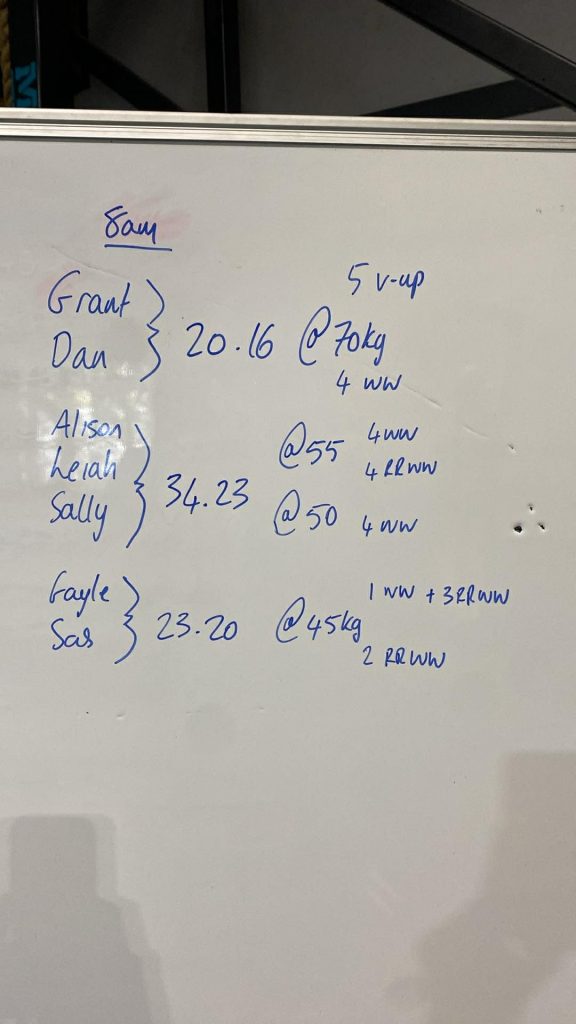 8am
5 v-up
Grant
Dan
20.16 @70kg
4 WW
Alison
Leiah
Sally
34.23
@55 4WW
4 RRWW
@50 4 WW
Gayle
Sas
23.20 @45kg
1 WW + 3RRWW
2 RRWW